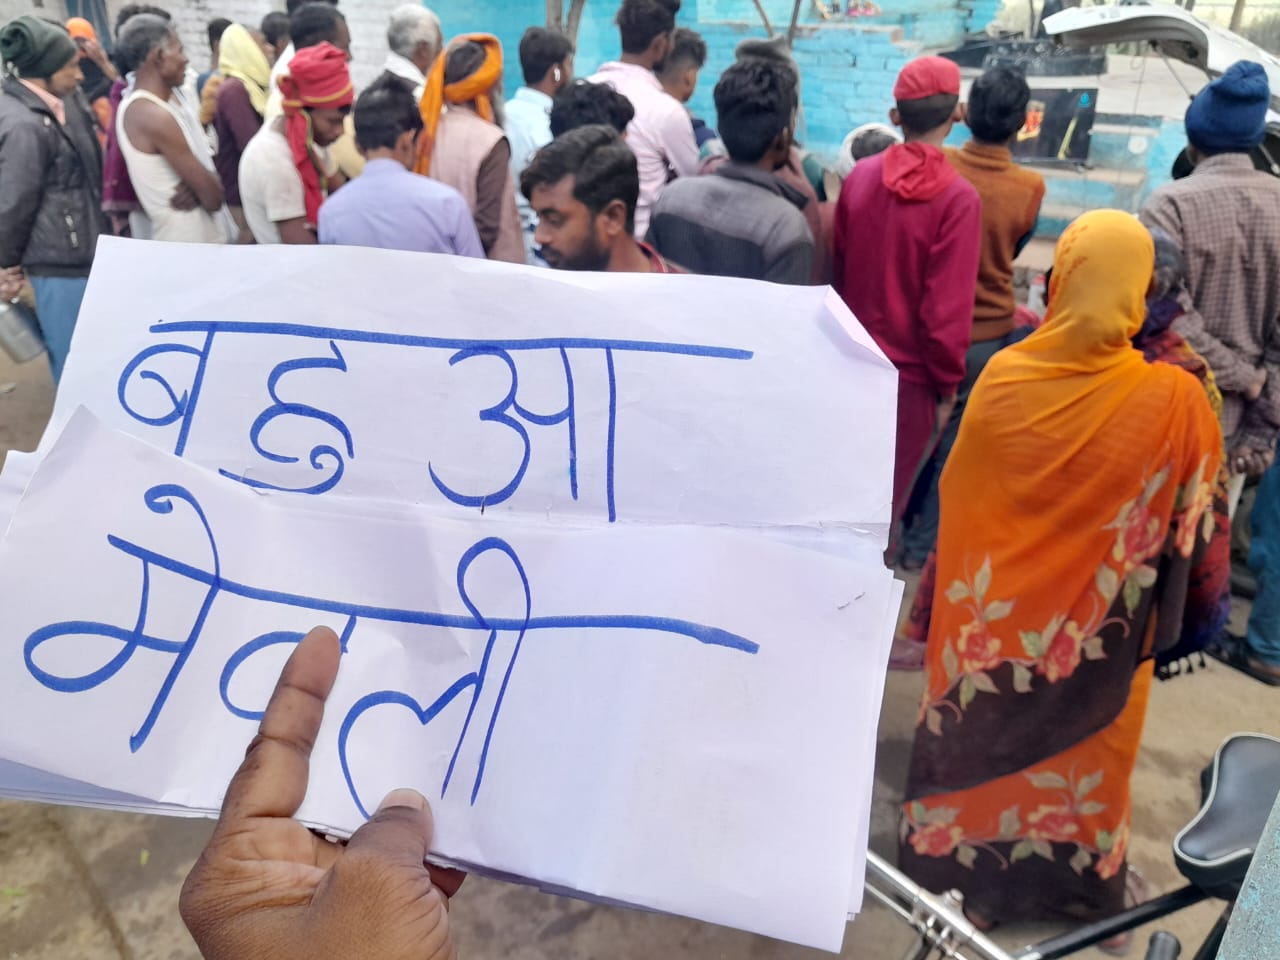 बहुआ
मेवली